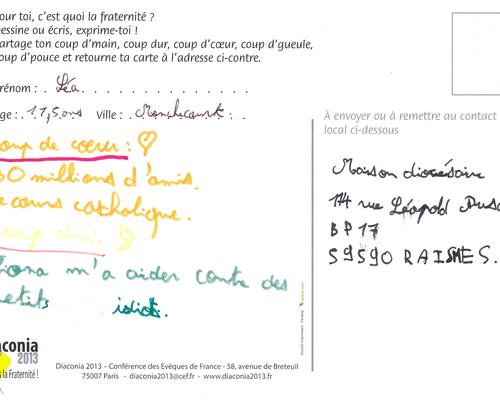 our toi, c'est quoi la fraternité ?
essine ou écris, exprime-toi !
artage ton coup d'main, coup dur, coup d'cœur, coup d'gueule,
oup d'pouce et retourne ta carte à l'adresse ci-contre.
rénom : . Léa . . . . . . . . . . . . . . . .
ge : . 11,5 ans ville : . Monchecourt . :
À envoyer ou à remettre au contact
local ci-dessous
oup de cœur : ♡
30 millions d'amis.
e cours catholique.
oup dur :
Maison diocésaine
174 rue Léopold Dusa
BP 17
59590 RAISMES.
iona m'a aider contre des
etits idiots.
aconia
2013
s la Fraternité !
Diaconia 2013 – Conférence des Evêques de France - 58, avenue de Breteuil
75007 Paris - diaconia2013@cef.fr - www.diaconia2013.fr